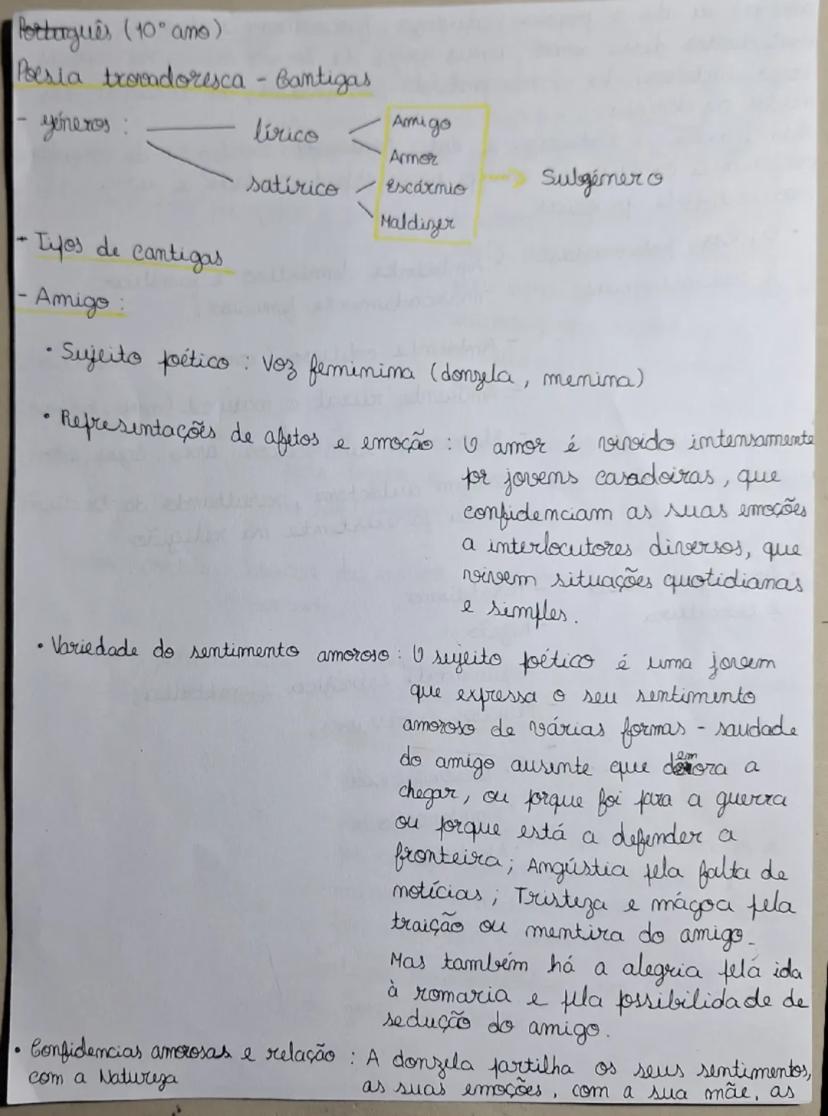 Português (10º ano)
Poesia trovadoresca - Cantigas
- géneros :
lírico
Amigo
Amor
satírico
Escárnio
Maldizer
Subgénero
- Tipos de cantigas
- Amigo :
• Sujeito poético : Voz feminina (donzela, menina)
• Representações de afetos e emoção : O amor é vivido intensamente
por jovens casadoiras, que
confidenciam as suas emoções
a interlocutores diversos, que
vivem situações quotidianas
e simples.
• Variedade do sentimento amoroso : O sujeito poético é uma jovem
que expressa o seu sentimento
amoroso de várias formas - saudade
do amigo ausente que demora a
chegar, ou porque foi para a guerra
ou porque está a defender a
fronteira; Angústia pela falta de
notícias; Tristeza e mágoa pela
traição ou mentira do amigo.
Mas também há a alegria pela ida
à romaria e pela possibilidade de
sedução do amigo.
• Confidencias amorosas e relação : A donzela partilha os seus sentimentos,
com a Natureza as suas emoções, com a sua mãe, as